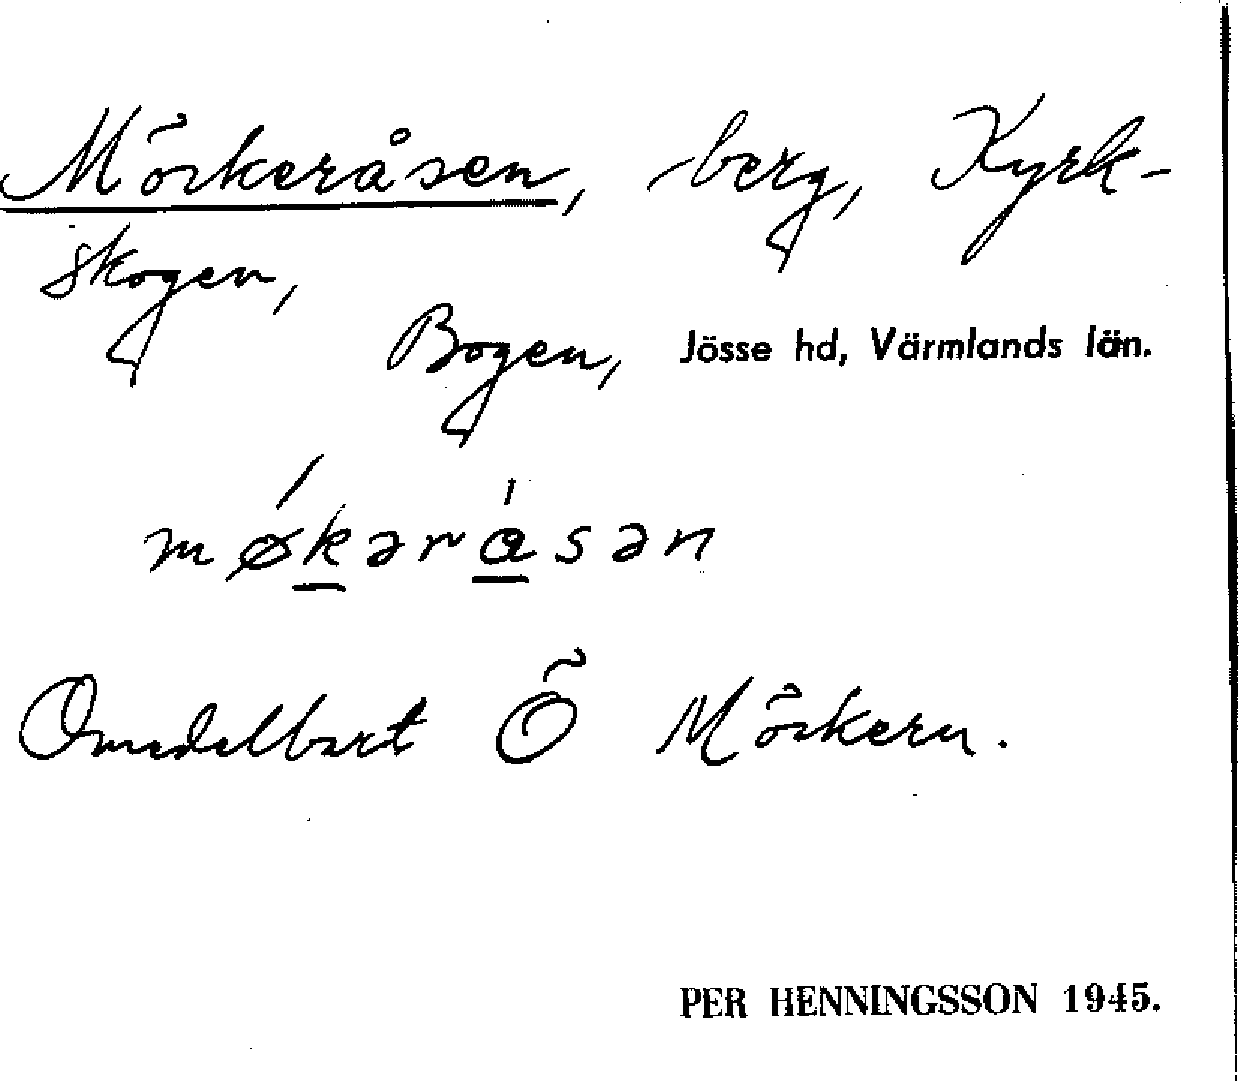 Mörkeråsen, berg, Kyrk-
skogen,
Bogen, Jösse hd, Värmlands län.
møkəråsən
Omedelbart Ö Mörkern.
PER HENNINGSSON 1945.